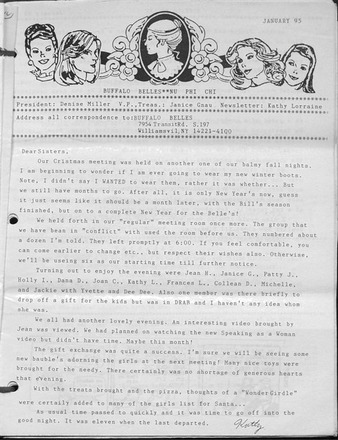 JANUARY 95
BUFFALO BELLES**NU PHI CHI
President: Denise Miller V.P.,Treas.: Janice Gnau Newsletter: Kathy Lorraine
Address all correspondence to:BUFFALO BELLES
7954 TransitRd. S.197
Williamsvil,NY 14221-4100
DearSisters,
Our Cristmas meeting was held on another one of our balmy fall nights.
I am beginning to wonder if I am ever going to wear my new winter boots.
Note, I didn't say I WANTED to wear them, rather it was whether... But
we still have months to go. After all, it is only New Year's now, guess
it just seems like it should be a month later, with the Bill's season
finished, but on to a complete New Year for the Belle's!
We held forth in our "regular" meeting room once more. The group that
we have been in "conflict" with used the room before us. They numbered about
a dozen I'm told. They left promptly at 6:00. If you feel comfortable, you
can come earlier to change etc., but respect their wishes also. Otherwise,
we'll be using six as our starting time till further notice.
Turning out to enjoy the evening were Jean H., Janice G., Patty J.,
Holly I., Dana D., Joan C., Kathy L., Frances L., Colleen D., Michelle,
and Jackie with Yvette and Dee Dee. Also one member was there briefly to
drop off a gift for the kids but was in DRAB and I haven't any idea whom
she was.
We all had another lovely evening. An interesting video brought by
Jean was viewed. We had planned on watching the new Speaking as a Woman
video but didn't have time. Maybe this month!
The gift exchange was quite a success. I'm sure we will be seeing some
new bauble's adorning the girls at the next meeting! Many nice toys were
brought for the needy. There certainly was no shortage of generous hearts
that evening.
With the treats brought and the pizza, thoughts of a "WonderGirdle"
were certainly added to many of the girls list for Santa...
As usual time passed to quickly and it was time to go off into the
good night. It was eleven when the last departed.
Kathy